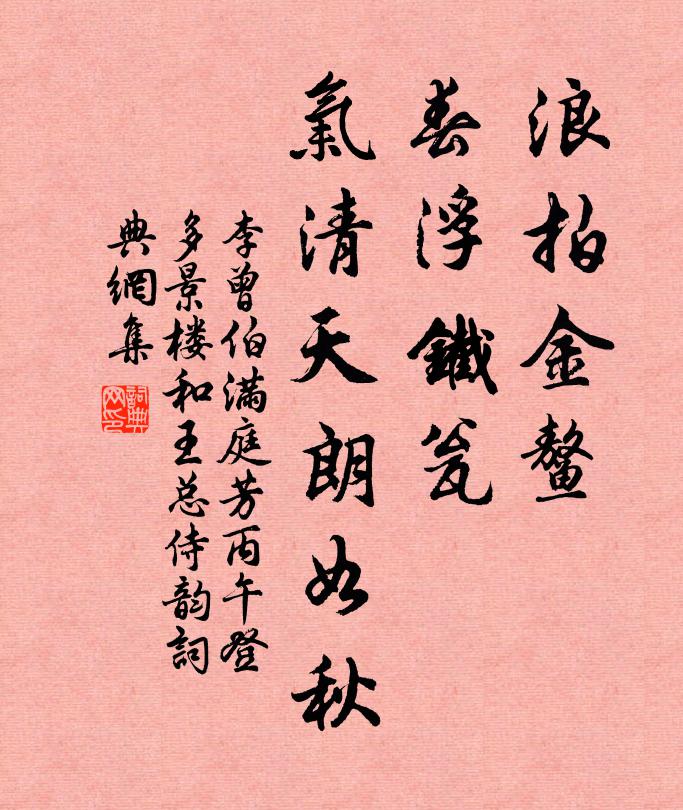 浪拍金鳌
春浮鐵瓮
氣清天朗如秋
李曾伯满庭芳丙午登
多景楼和王总侍韵詞
典網集
詞典
网印